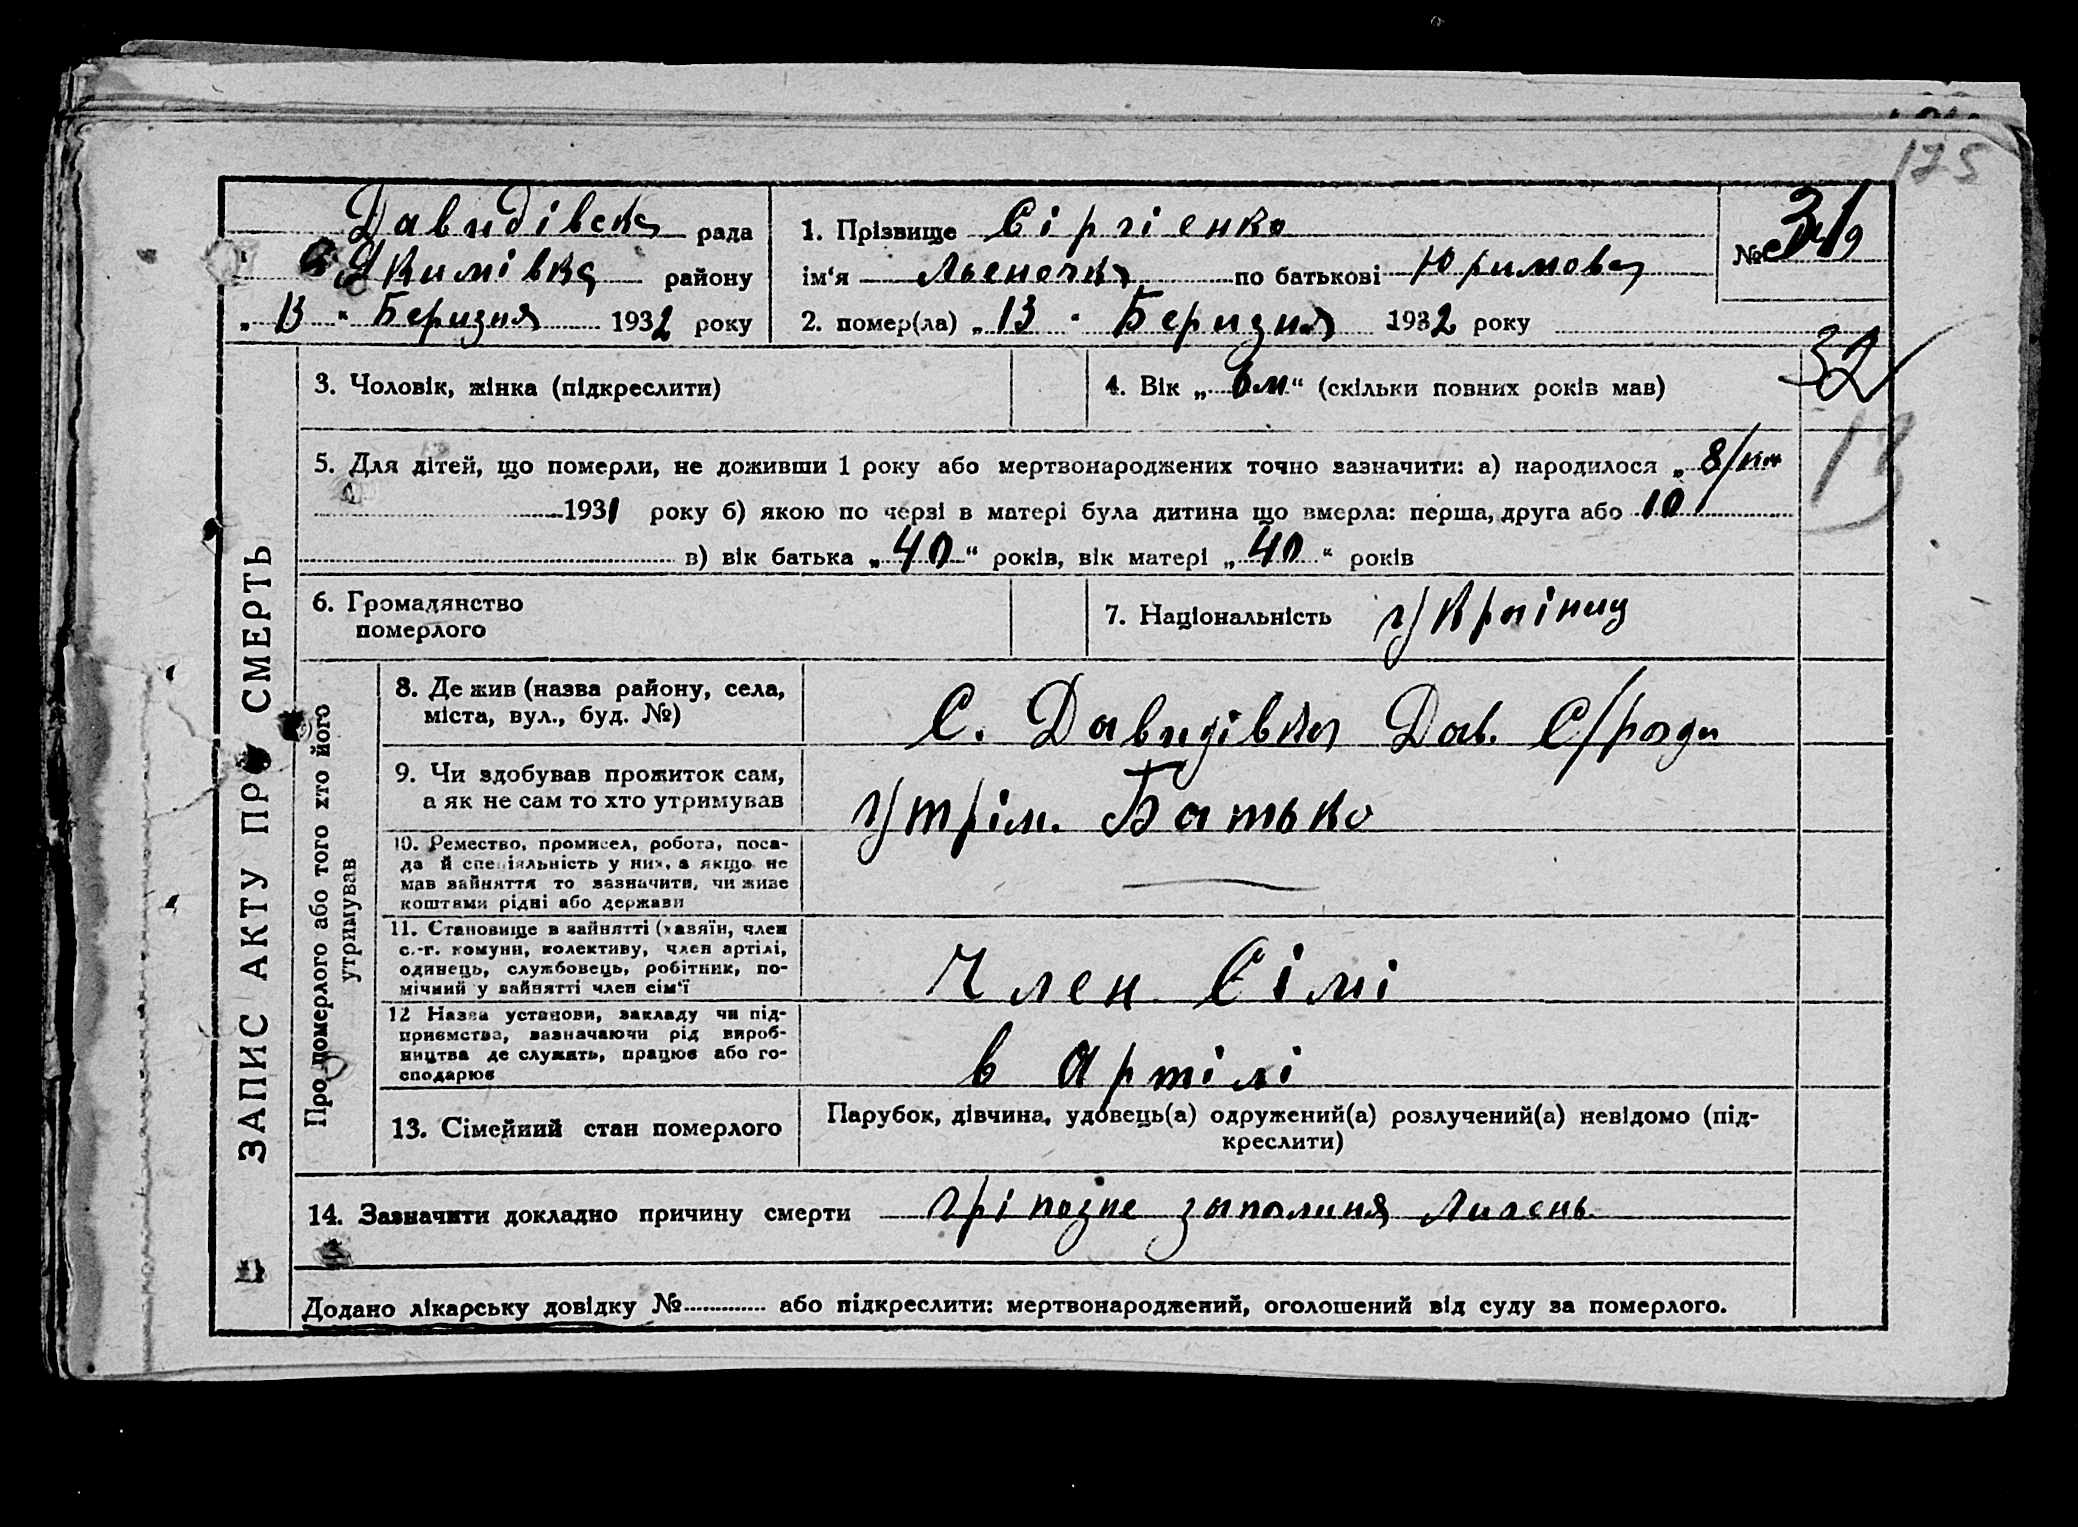 175
Давидівска рада
Якимівка району
„13“ Беризня 1932 року
1. Прізвище Сіргіенко
ім‘я по батькові
2. помер(ла) „13“ Беризня 1932 року
№
32
3. Чоловік, жінка (підкреслити)
4. Вік „6м“ (скільки повних років мав)
13
5. Для дітей, що померли, не доживши 1 року або мертвонароджених точно зазначити: а) народилося „8/
1931 року б) якою по черзі в матері була дитина що вмерла: перша, друга або 10
в) вік батька „40“ років, вік матері „40“ років
6. Громадянство
померлого
7. Національність україниц
ЗАПИС АКТУ ПРО СМЕРТЬ
Про померлого або того хто його
утримував
8. Де жив (назва району, села,
міста, вул., буд. №)
С. Давидівка Дав. С/ради
9. Чи здобував прожиток сам,
а як не сам то хто утримував
утрім. Батько
10. Ремество, промисел, робота, поса-
да й спеціяльність у них, а якщо не
мав зайняття то зазначити, чи живе
коштами рідні або держави
11. Становище в зайнятті (хазяїн, член
с.-г. комуни, колективу, член артілі,
одинець, службовець, робітник, по-
мічний у зайнятті член сім‘ї
Член Сімі
12 Назва установи, закладу чи під-
приємства, зазначаючи рід вироб-
ництва де служить, працює або го-
сподарює
в Артілі
13. Сімейний стан померлого
Парубок, дівчина, удовець(а) одружений(а) розлучений(а) невідомо (під-
креслити)
14. Зазначити докладно причину смерти гріпозне запалиня Лигень
Додано лікарську довідку № або підкреслити: мертвонароджений, оголошений від суду за померлого.